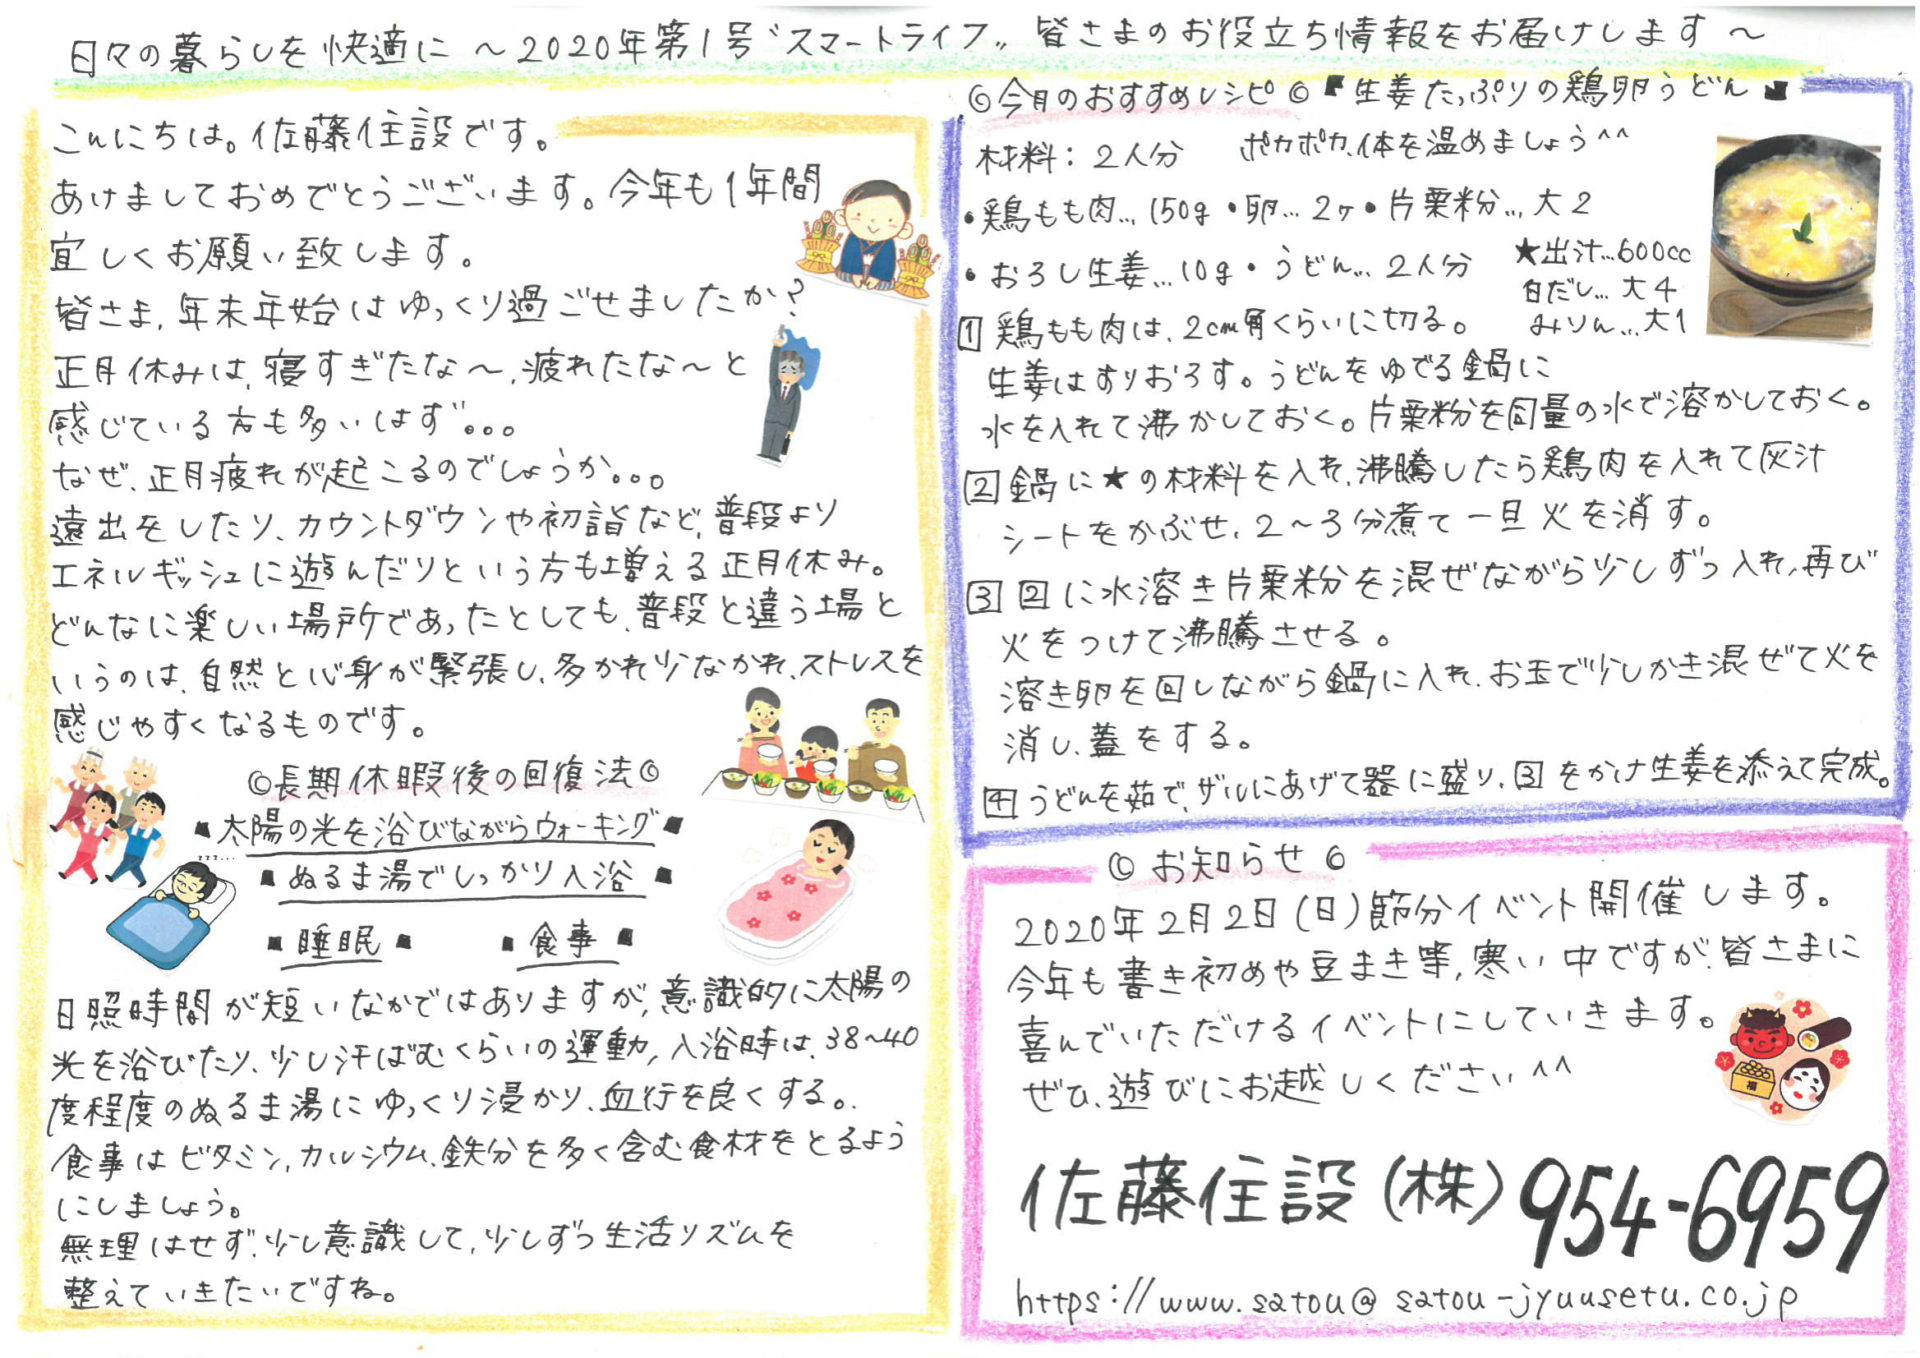 日々の暮らしを快適に ～2020年第1号〝スマートライフ〟皆さまのお役立ち情報をお届けします～
こんにちは。佐藤住設です。
あけましておめでとうございます。今年も1年間
宜しくお願い致します。
皆さま、年末年始はゆっくり過ごせましたか？
正月休みは、寝すぎたな～、疲れたな～と
感じている方も多いはず。。。
なぜ、正月疲れが起こるのでしょうか。。。
遠出をしたり、カウントダウンや初詣など、普段より
エネルギッシュに遊んだりという方も増える正月休み。
どんなに楽しい場所であったとしても、普段と違う場と
いうのは、自然と心身が緊張し、多かれ少なかれ、ストレスを
感じやすくなるものです。
◎長期休暇後の回復法◎
▪太陽の光を浴びながらウォーキング▪
▪ぬるま湯でしっかり入浴▪
▪睡眠▪ ▪食事▪
zzz...
日照時間が短いなかではありますが、意識的に太陽の
光を浴びたり、少し汗ばむくらいの運動、入浴時は、38～40
度程度のぬるま湯にゆっくり浸かり、血行を良くする。
食事はビタミン、カルシウム、鉄分を多く含む食材をとるよう
にしましょう。
無理はせず、少し意識して、少しずつ生活リズムを
整えていきたいですね。
◎今月のおすすめレシピ◎『生姜たっぷりの鶏卵うどん』
材料：2人分 ポカポカ、体を温めましょう^^
・鶏もも肉…150g・卵…2ヶ・片栗粉…大2
・おろし生姜…10g・うどん…2人分
★出汁…600cc
白だし…大4
みりん…大1
1 鶏もも肉は、2cm角くらいに切る。
生姜はすりおろす。うどんをゆでる鍋に
水を入れて沸かしておく。片栗粉を同量の水で溶かしておく。
2 鍋に★の材料を入れ、沸騰したら鶏肉を入れて灰汁
シートをかぶせ、2～3分煮て一旦火を消す。
3 2に水溶き片栗粉を混ぜながら少しずつ入れ、再び
火をつけて沸騰させる。
溶き卵を回しながら鍋に入れ、お玉で少しかき混ぜて火を
消し、蓋をする。
4 うどんを茹で、ザルにあげて器に盛り、3をかけ生姜を添えて完成。
◎お知らせ◎
2020年2月2日(日)節分イベント開催します。
今年も書き初めや豆まき等、寒い中ですが、皆さまに
喜んでいただけるイベントにしていきます。
ぜひ、遊びにお越しください^^
福
佐藤住設(株)954-6959
https://www.satou@satou-jyuusetu.co.jp